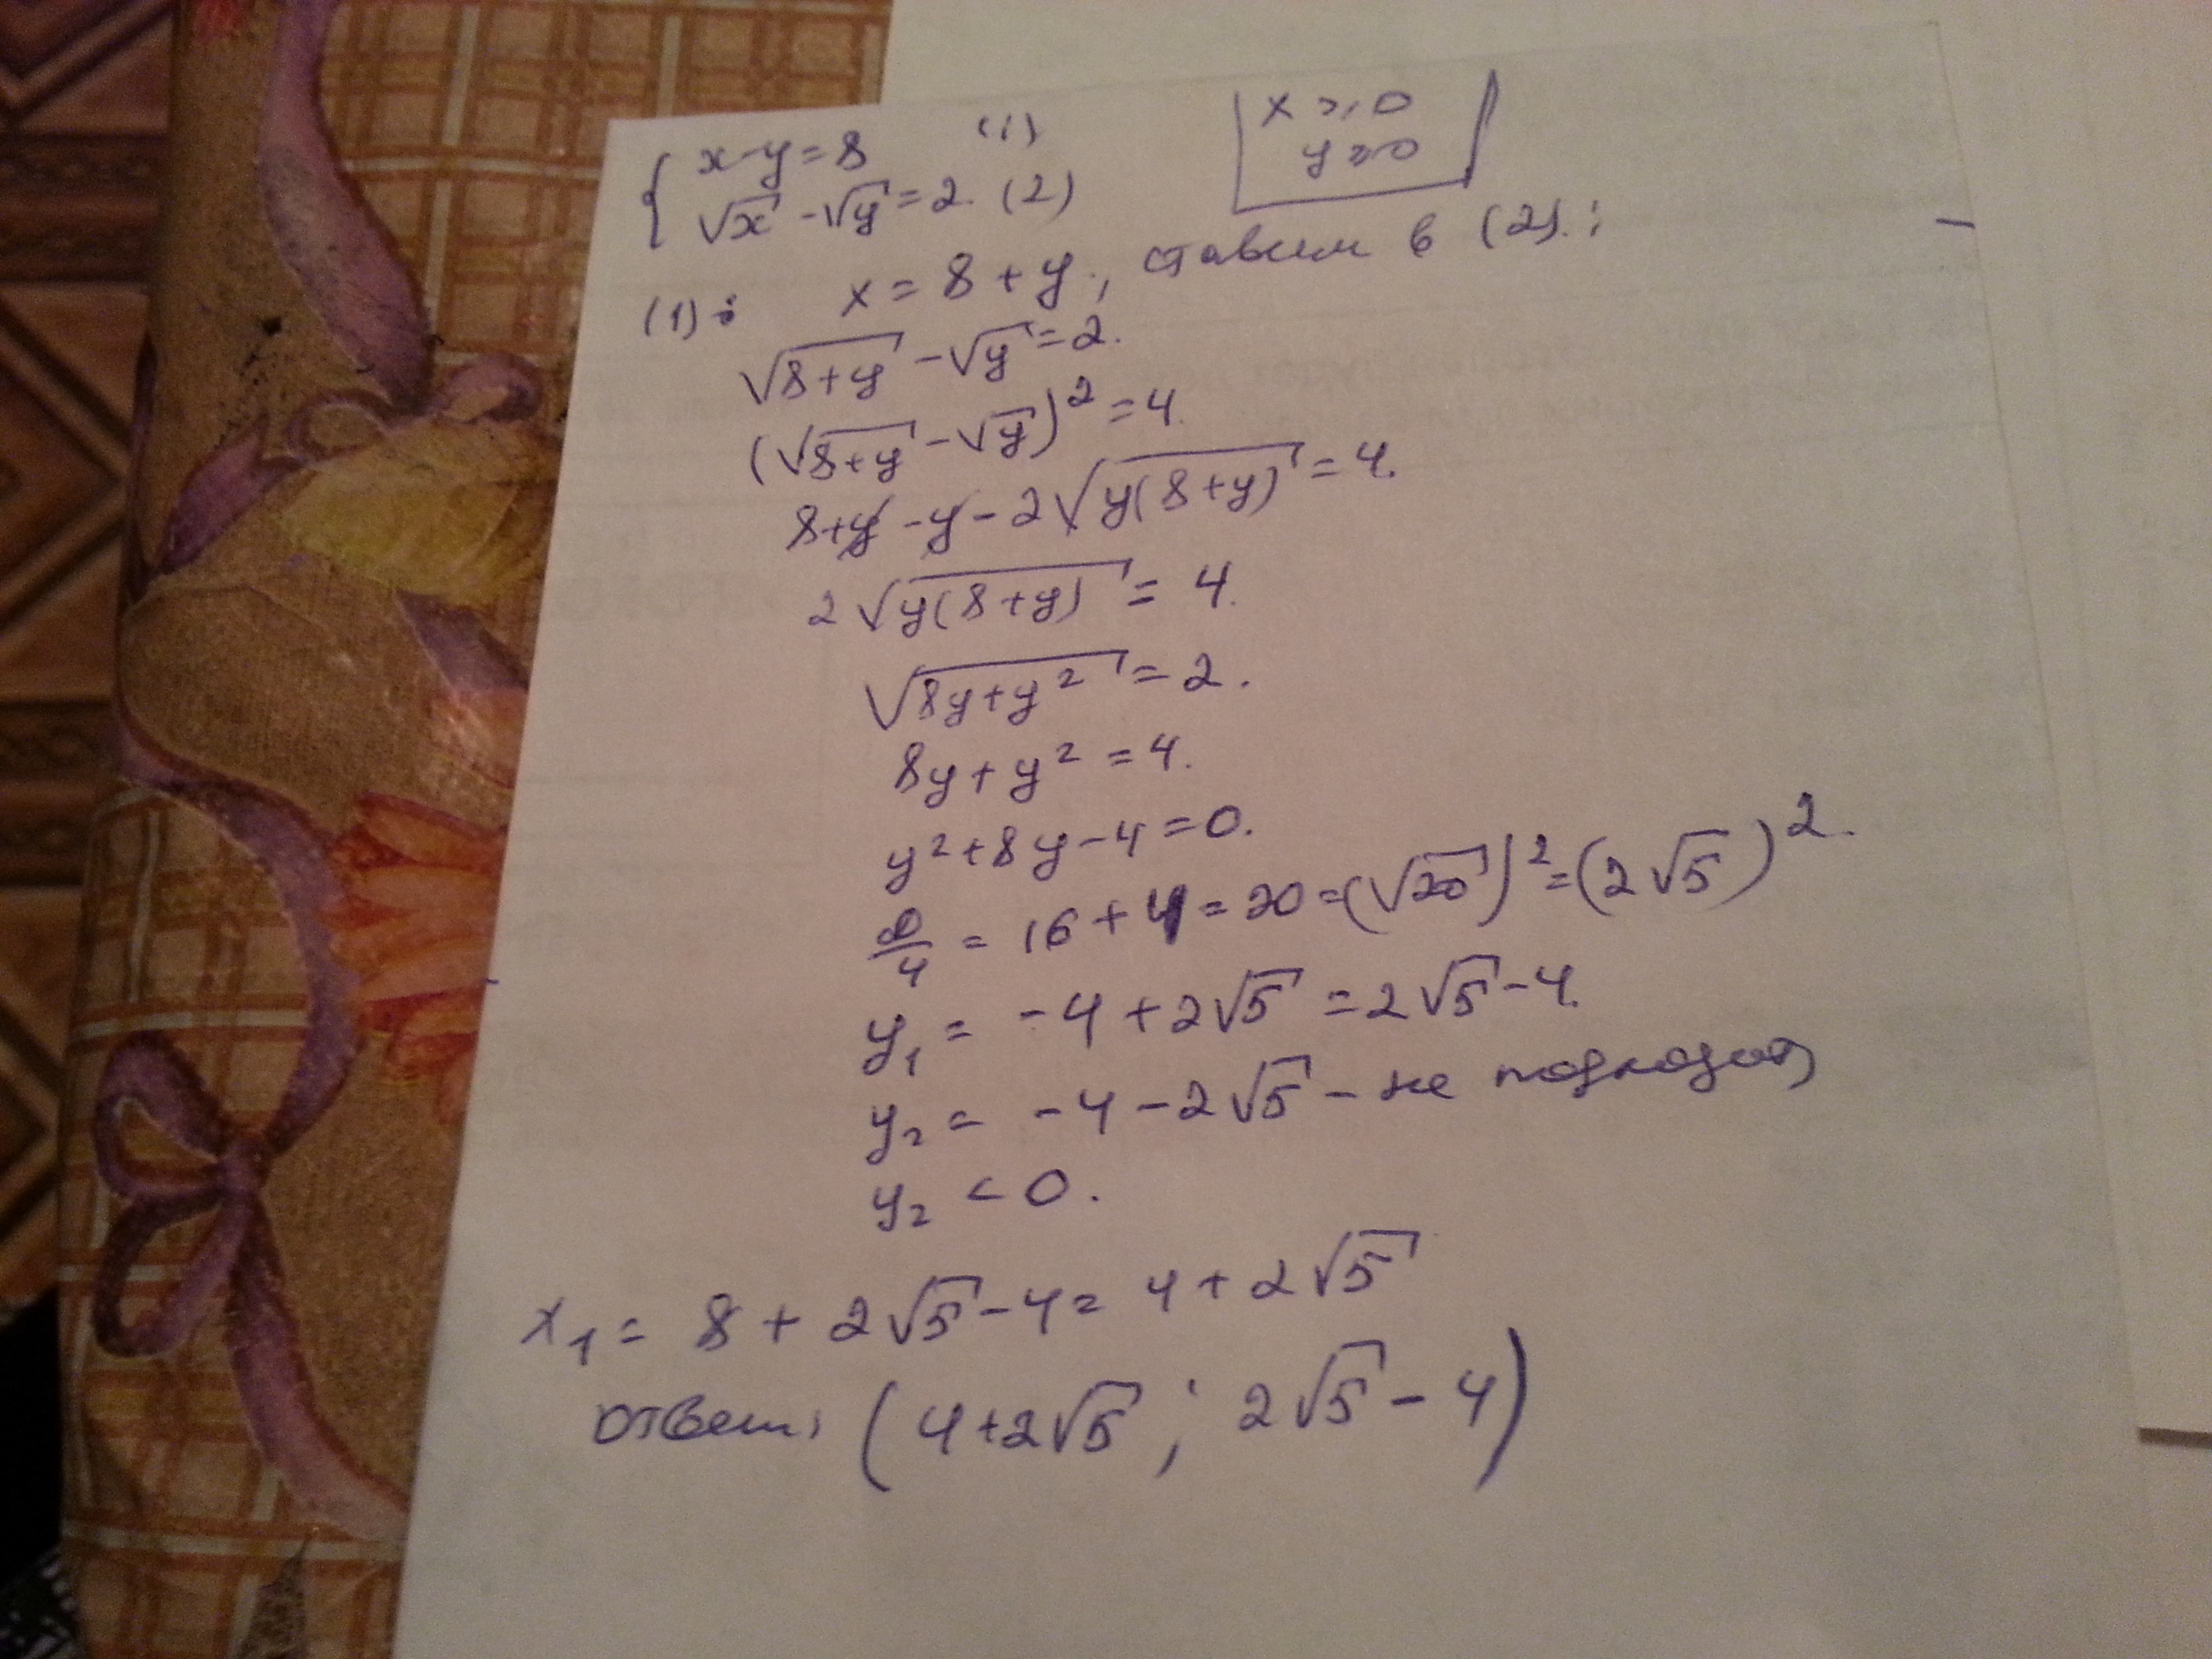 { x-y=8 (1)
√x - √y = 2. (2)
x ≥ 0
y ≥ 0
(1): x = 8 + y, ставим в (2).:
√(8+y) - √y = 2.
(√(8+y) - √y)² = 4.
8+y - y - 2√(y(8+y)) = 4.
2√(y(8+y)) = 4.
√(8y+y²) = 2.
8y + y² = 4.
y²+8y-4=0.
D/4 = 16 + 4 = 20 = (√20)² = (2√5)².
y₁ = -4 + 2√5 = 2√5 - 4.
y₂ = -4 - 2√5 - не подходит
y₂ < 0.
x₁ = 8 + 2√5 - 4 = 4 + 2√5
ответ: (4+2√5; 2√5 - 4)